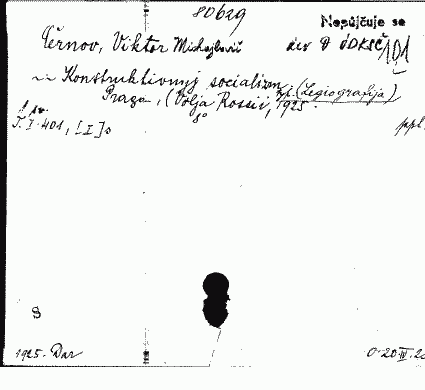 80629
Nepůjčuje se
Černov, Viktor Michajlovič
101
Konstruktivnyj socializm
(Legiografija)
Praga, (Volja Rossii, 1925.
8°
1 sv.
T. I. 401, [I] s
ppl.
S
1925. Dar
O. 20 IV. 2